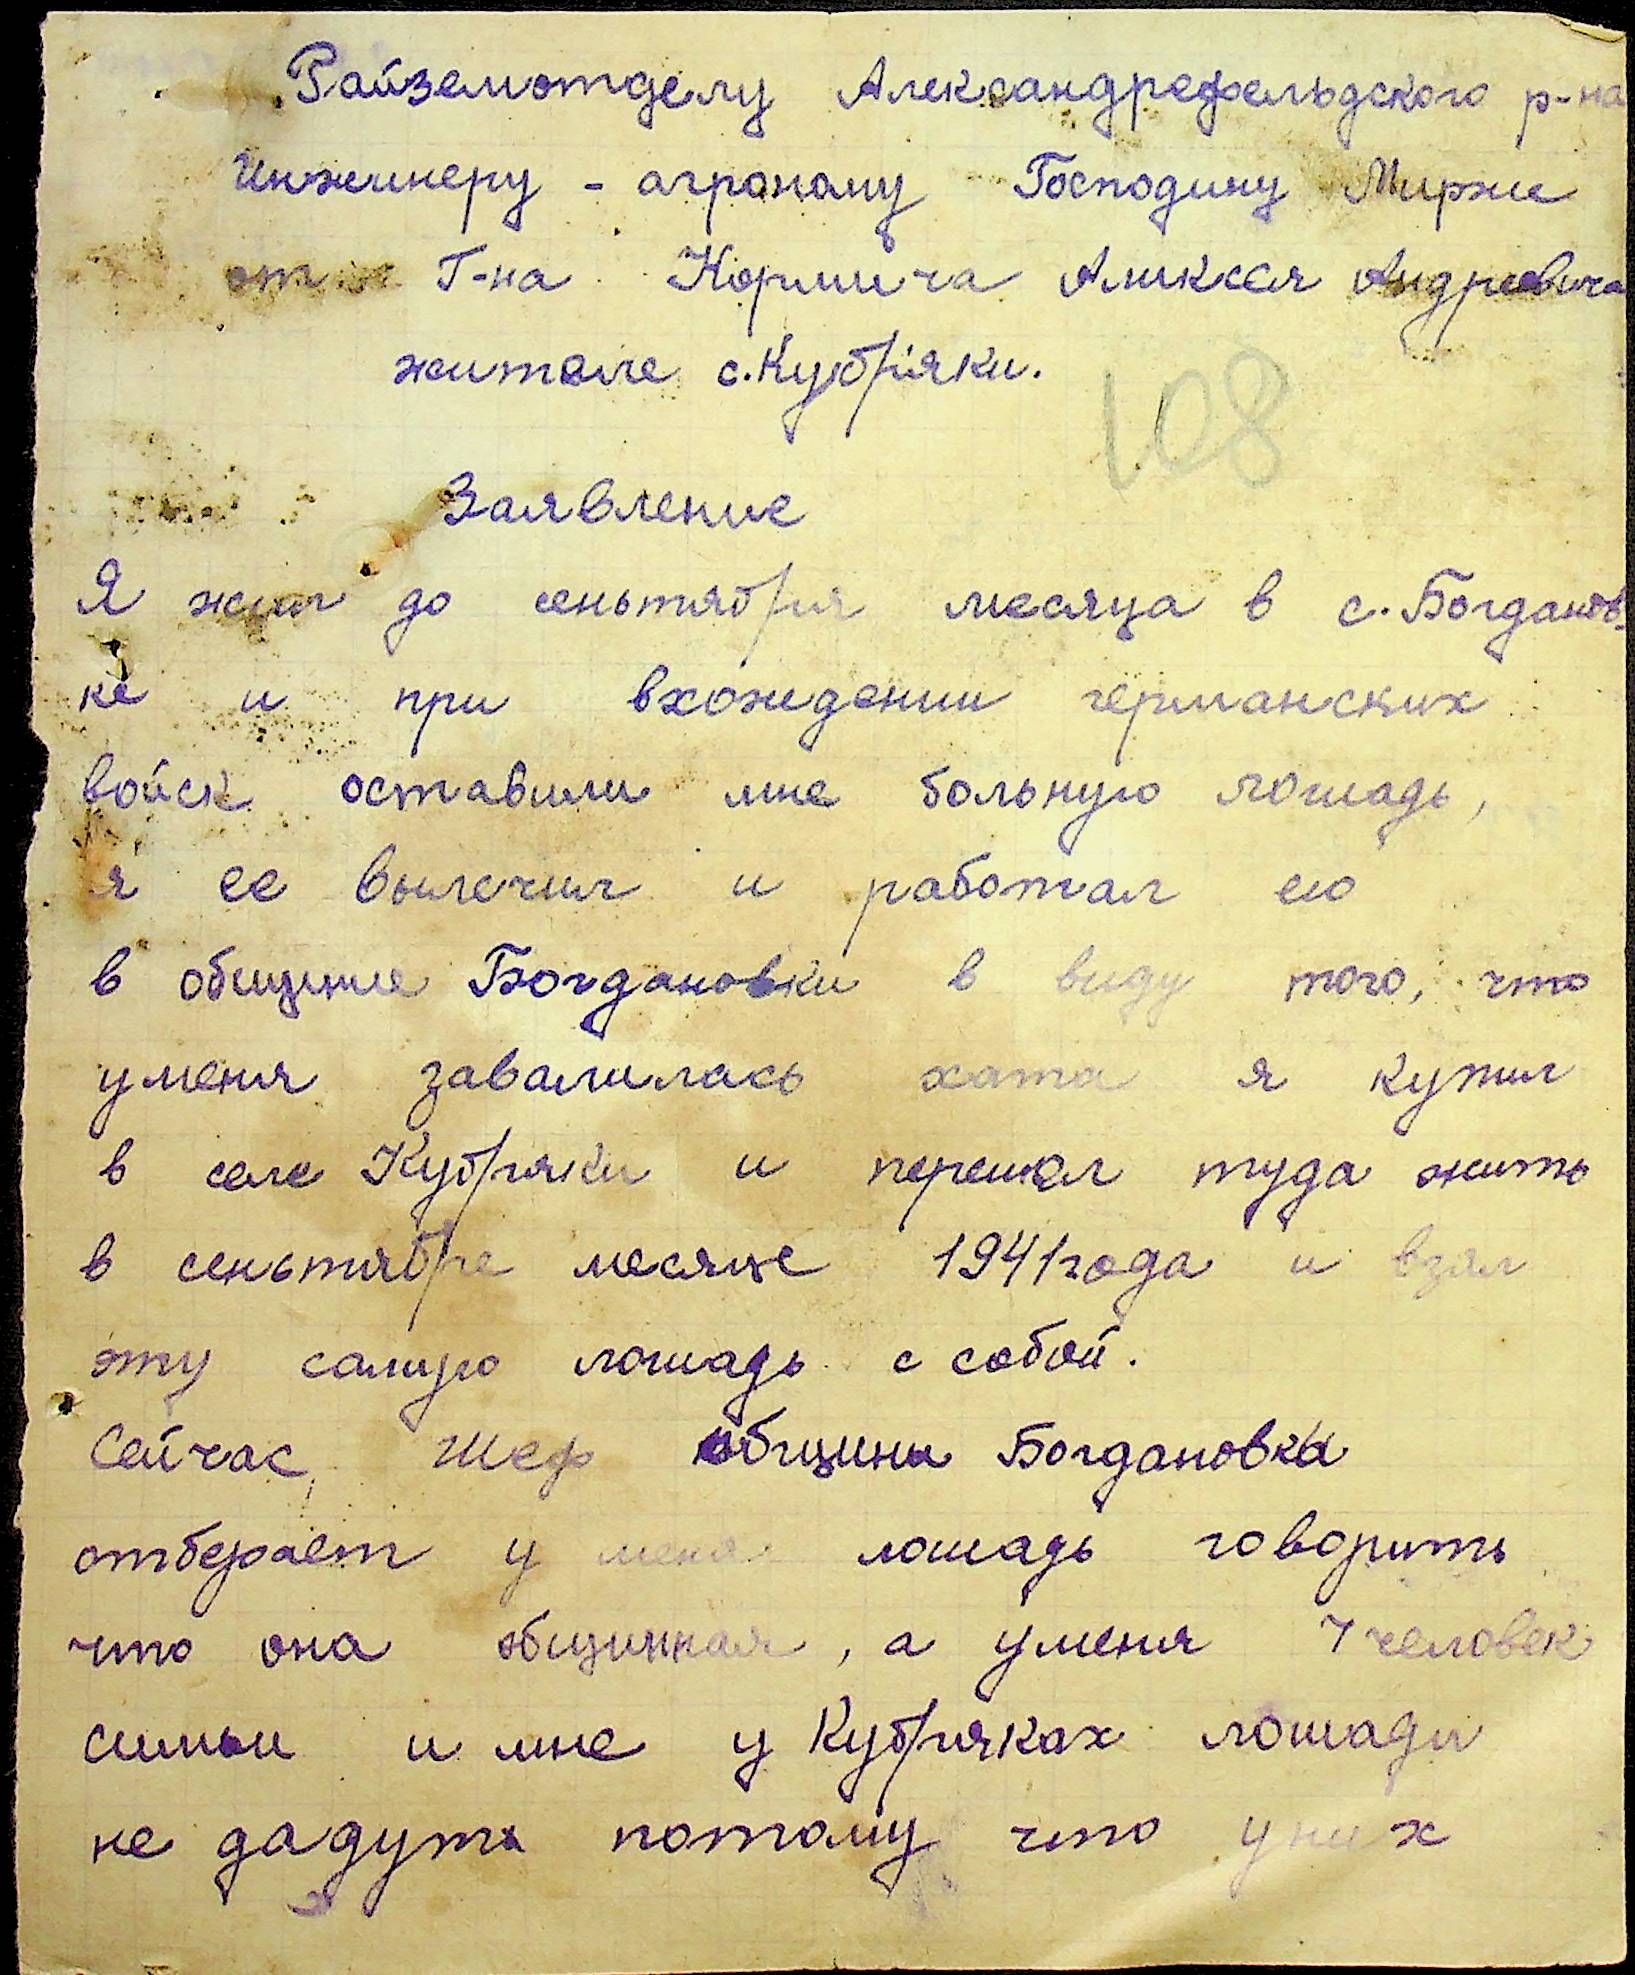 Райземотделу Александрефельдского р-на
Инженеру - агроному Господину Мирже
от Г-на Кормича Аликсея Андреевича
жителе с. Кубряки.
108
Заявление
Я жил до сеньтября месяца в с. Богданов-
ке и при вхождении германских
войск оставили мне больную лошадь,
я ее вылечил и работал ею
в общине Богдановки в виду того, что
уменя завалилась хата я купил
в селе Кубряки и перешол туда жить
в сеньтябре месяце 1941 года и взял
эту самую лошадь с собой.
Сейчас, Шеф общины Богдановка
отберает у меня лошадь говорить
что она общинная, а уменя 7 человек
симьи и мне у Кубряках лошади
не дадуть потому что у них